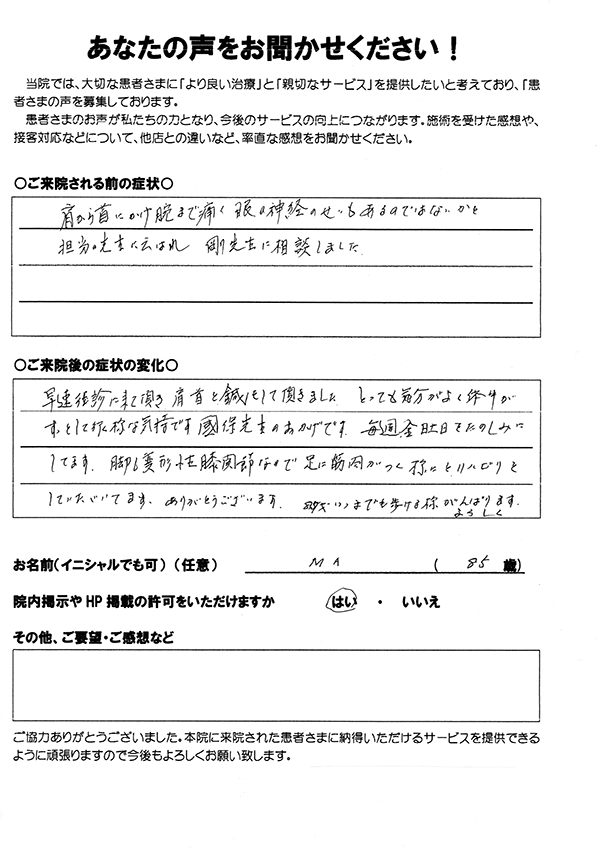 あなたの声をお聞かせください!
当院では、大切な患者さまに「より良い治療」と「親切なサービス」を提供したいと考えており、「患
者さまの声を募集しております。
患者さまのお声が私たちの力となり、今後のサービスの向上につながります。施術を受けた感想や、
接客対応などについて、他店との違いなど、率直な感想をお聞かせください。
○ご来院される前の症状○
肩から首にかけ腕まで痛く 眼の神経のせいもあるのではないかと
担当の先生に云はれ 剛先生に相談しました
○ご来院後の症状の変化○
早速往診に来て頂き 肩首と鍼をして頂きました とっても気分がよく体中が
すっとして行た様な気持です 國保先生のおかげです 毎週金土日をたのしみに
してます。脚も変形性膝関節なので 足に筋肉がつく様にとリハビリを
していたゞいてます。ありがとうございます。いつまでも歩ける様がんばります。
よろしく
お名前(イニシャルでも可)(任意) MA (85歳)
院内掲示やHP掲載の許可をいただけますか はい ・ いいえ
その他、ご要望・ご感想など
ご協力ありがとうございました。本院に来院された患者さまに納得いただけるサービスを提供できる
ように頑張りますので今後もよろしくお願い致します。